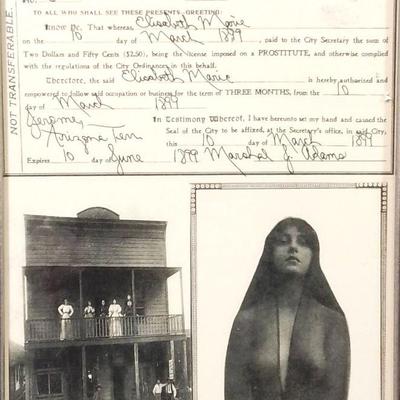 No.
TO ALL WHO SHALL SEE THESE PRESENTS, GREETING:
Know Be, That whereas, Elisabeth Marie
on the 10 day of March 1899, paid to the City Secretary the sum of
Two Dollars and Fifty Cents ($2.50), being the license imposed on a PROSTITUTE, and otherwise complied
with the regulations of the City Ordinances in this behalf.
Therefore, the said Elisabeth Marie is hereby authorized and
empowered to follow said occupation or business for the term of THREE MONTHS, from the 10
day of March 1899
Jerome,
Arizona Terr
In Testimony Whereof, I have hereunto set my hand and caused the
Seal of the City to be affixed, at the Secretary's office, in said City,
this 10 day of March 1899
Expires 10 day of June 1899 Marshal J. Adams
NOT TRANSFERABLE